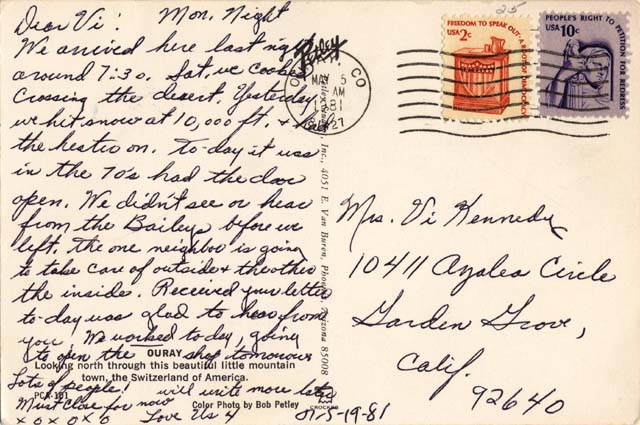 Dear Vi: Mon. Night
We arrived here last night
around 7:30. Sat. we cooked
Crossing the desert. Yesterday
we hit snow at 10,000 ft. &
the heater on. to-day it was
in the 70's had the door
open. We didn't see or hear
from the Baileys before we
left. The one neighbor is going
to take care of outside & the other
the inside. Received your letter
to-day was glad to hear from
you. We worked to-day, going
to open the shop tomorrow
Lots of people! will write more later
Must Close for now
Love Us 4
x o x o x o
OURAY
Looking north through this beautiful little mountain
town, the Switzerland of America.
PCA-181
Color Photo by Bob Petley
CROCKER
Petley
Inc., 4051 E. Van Buren, Phoenix, Arizona 85008
CO
MAY 5
AM
1981
25
FREEDOM TO SPEAK OUT-A ROOT OF DEMOCRACY
USA 2c
PEOPLE'S RIGHT TO PETITION FOR REDRESS
USA 10c
Mrs. Vi Kennedy
10411 Azalea Circle
Garden Grove,
Calif.
92640
5-19-81